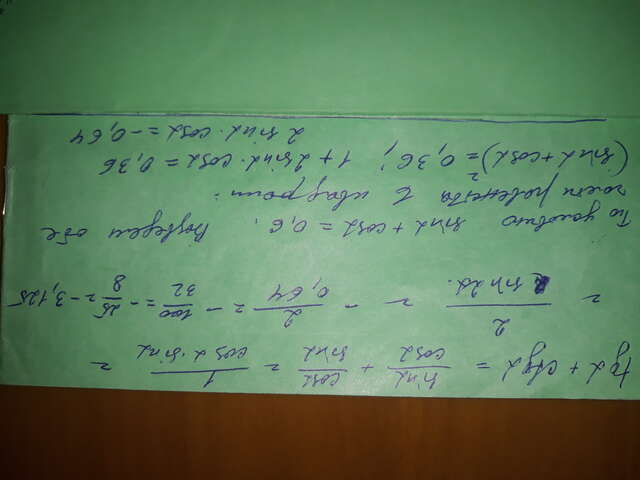 tg α + ctg α = sin α / cos α + cos α / sin α = 1 / cos α · sin α =
= 2 / sin 2α = - 2 / 0,64 = - 100 / 32 = - 25 / 8 = - 3,125
По условию sin α + cos α = 0,6. Возведем обе
части равенства в квадрат:
(sin α + cos α)² = 0,36; 1 + 2 sin α · cos α = 0,36
2 sin α · cos α = - 0,64